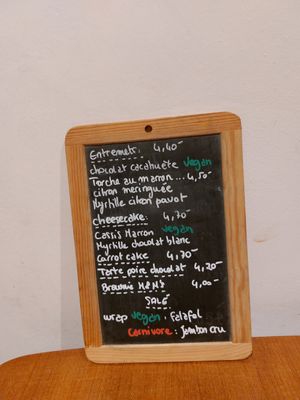 Entremets : 4,40-
chocolat cacahuète vegan
Torche au marron ... 4,50-
citron meringuée
Myrtille citron pavot
cheesecake : 4,70-
Cassis Marron vegan
Myrtille chocolat blanc
Carrot cake : 4,70-
Tarte poire chocolat 4,20-
Brownie M&M's 4,00-
SALÉ
wrap vegan : Falafel
Carnivore : Jambon cru